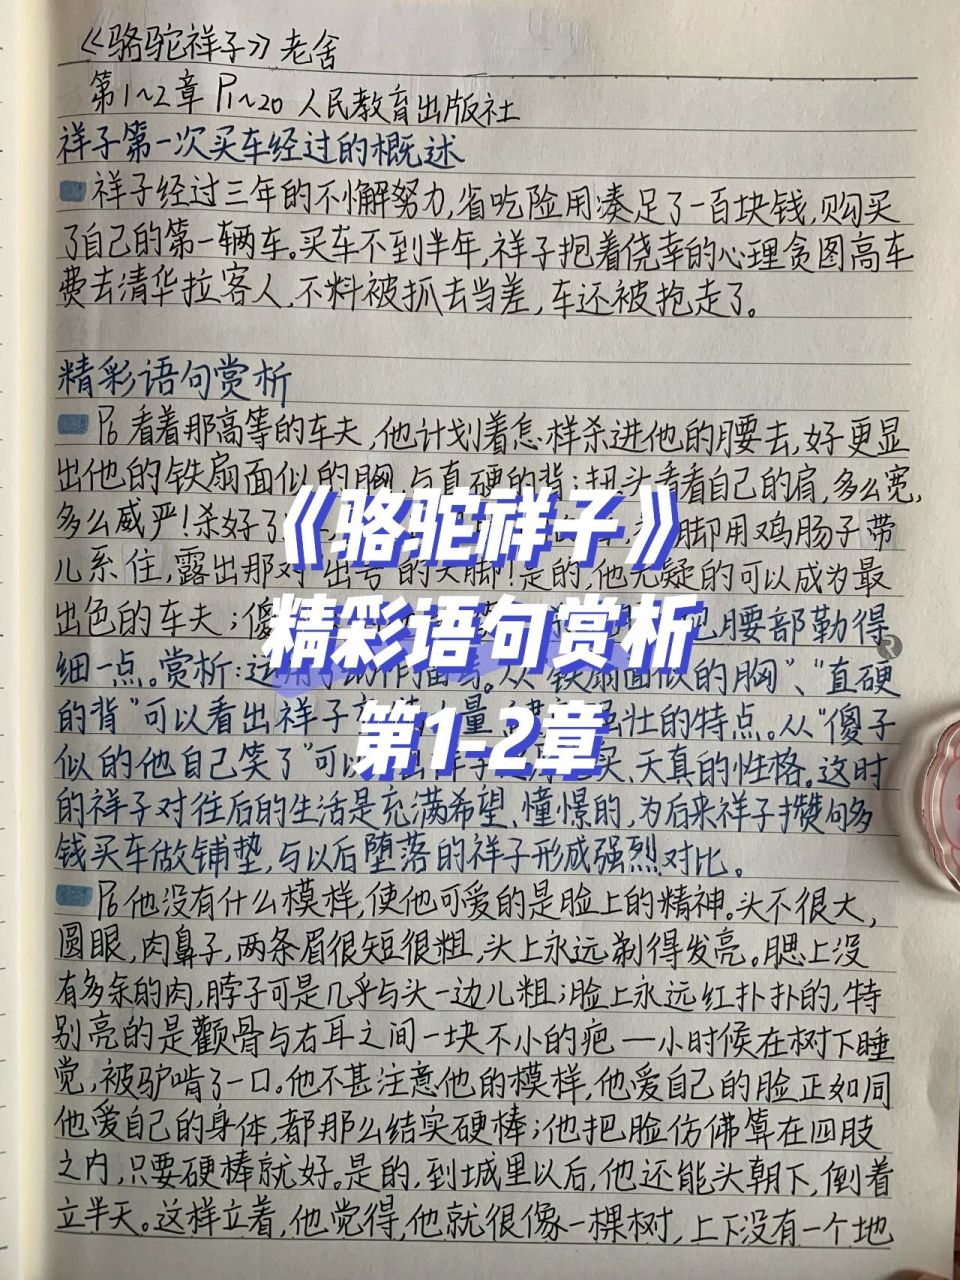 《骆驼祥子》老舍
第1~2章 P1~20 人民教育出版社
祥子第一次买车经过的概述
祥子经过三年的不懈努力,省吃险用凑足了一百块钱,购买
了自己的第一辆车。买车不到半年,祥子抱着侥幸的心理贪图高车
费去清华拉客人,不料被抓去当差,车还被抢走了。
精彩语句赏析
P6 看着那高等的车夫,他计划着怎样杀进他的腰去,好更显
出他的铁扇面似的胸,与直硬的背;扭头看看自己的肩,多么宽,
多么威严!杀好了
脚用鸡肠子带
儿系住,露出那对"出号"的大脚!是的,他无疑的可以成为最
出色的车夫;傻
把腰部勒得
细一点。赏析:运用了动作描写。从"铁扇面似的胸"、"直硬
的背"可以看出祥子
壮的特点。从"傻子
似的他自己笑了"可以
实、天真的性格。这时
的祥子对往后的生活是充满希望、憧憬的,为后来祥子攒够多
钱买车做铺垫,与以后堕落的祥子形成强烈对比。
《骆驼祥子》
精彩语句赏析
第1-2章
P6 他没有什么模样,使他可爱的是脸上的精神。头不很大,
圆眼,肉鼻子,两条眉很短很粗,头上永远剃得发亮。腮上没
有多余的肉,脖子可是几乎与头一边儿粗;脸上永远红扑扑的,特
别亮的是颧骨与右耳之间一块不小的疤——小时候在树下睡
觉,被驴啃了一口。他不甚注意他的模样,他爱自己的脸正如同
他爱自己的身体,都那么结实硬棒;他把脸仿佛算在四肢
之内,只要硬棒就好。是的,到城里以后,他还能头朝下,倒着
立半天。这样立着,他觉得,他就很像一棵树,上下没有一个地